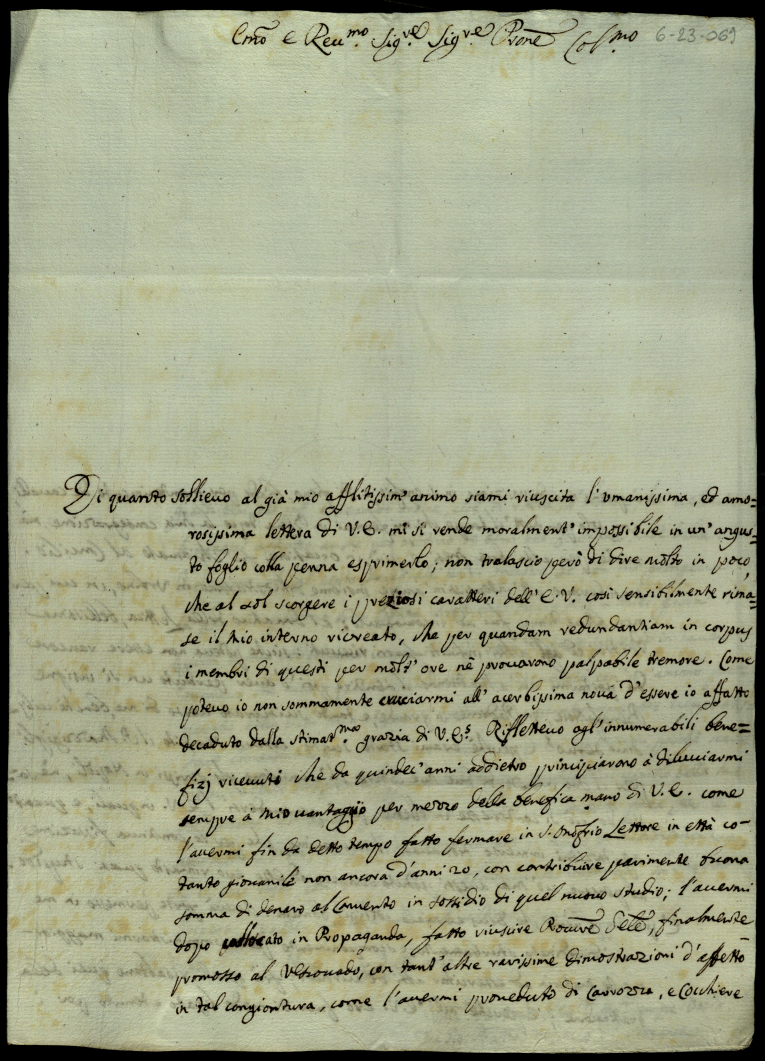 Emo e Reu.mo Sig.re Sig.re Prone Col.mo 6-23-069
Di quanto sollieuo al già mio afflitissim' animo siami riuscita l'vmanissima, ed amo=
rosissima lettera di V.E. mi si rende moralment' impossibile in un' angus=
to foglio colla penna esprimerlo; non tralascio però di dire molto in poco,
che al sol scorgere i preziosi caratteri dell' E.V. così sensibilmente rima=
se il mio interno ricreato, che per quandam redundantiam in corpus
i membri di questi per molt' ore nè prouarono palpabile tremore. Come
poteuo io non sommamente cruciarmi all' acerbissima noua d'essere io affatto
decaduto dalla stimat.ma grazia di V.E.? Rifletteuo agl'innumerabili bene=
fizj riceuuti che da quindec' anni addietro principiarono à diluuiarmi
sempre à mio uantaggio per mezzo della benefica mano di V.E. come
l'auermi fin da detto tempo fatto fermare in S. Onofrio Lettore in età co-
tanto giouanile non ancora d'anni 20, con contribuire parimente buona
somma di denaro al Conuento in sossidio di quel nuouo studio; l'auermi
dopo collocato in Propaganda, fatto riuscire Procure Gñle, finalmente
promosso al Vescouado, con tant' altre rarissime dimostrazioni d'affetto
in tal congiontura, come l'auermi proueduto di Carrozza, e Cocchiere